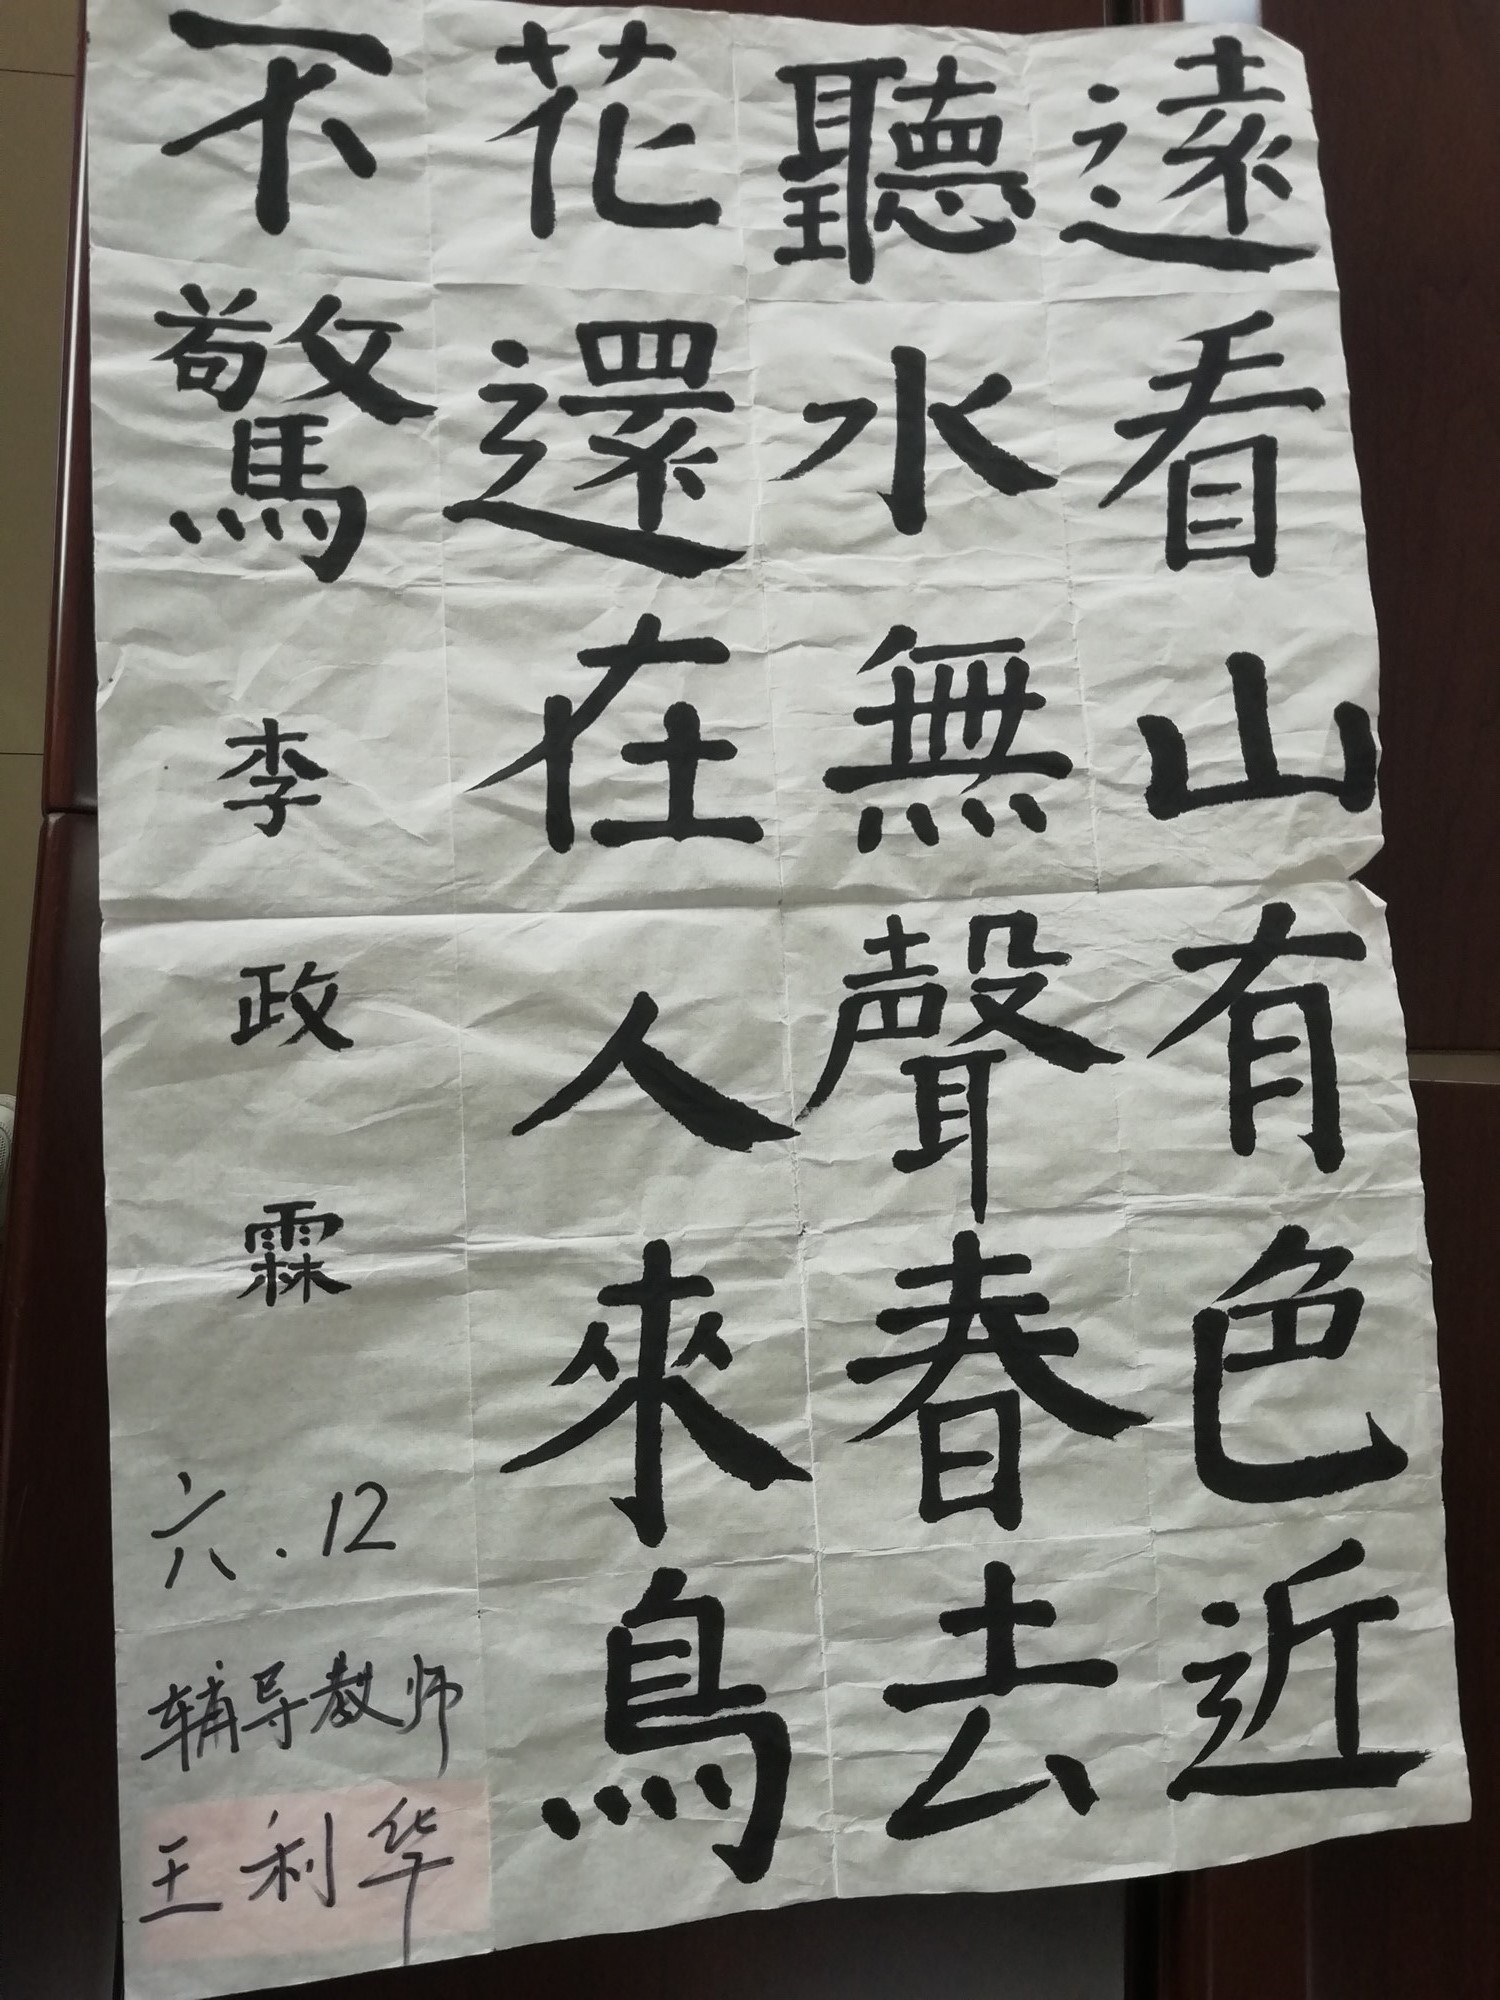 遠看山有色近
聽水無聲春去
花還在人來鳥
不驚
李政霖
六.12
辅导教师
王利华